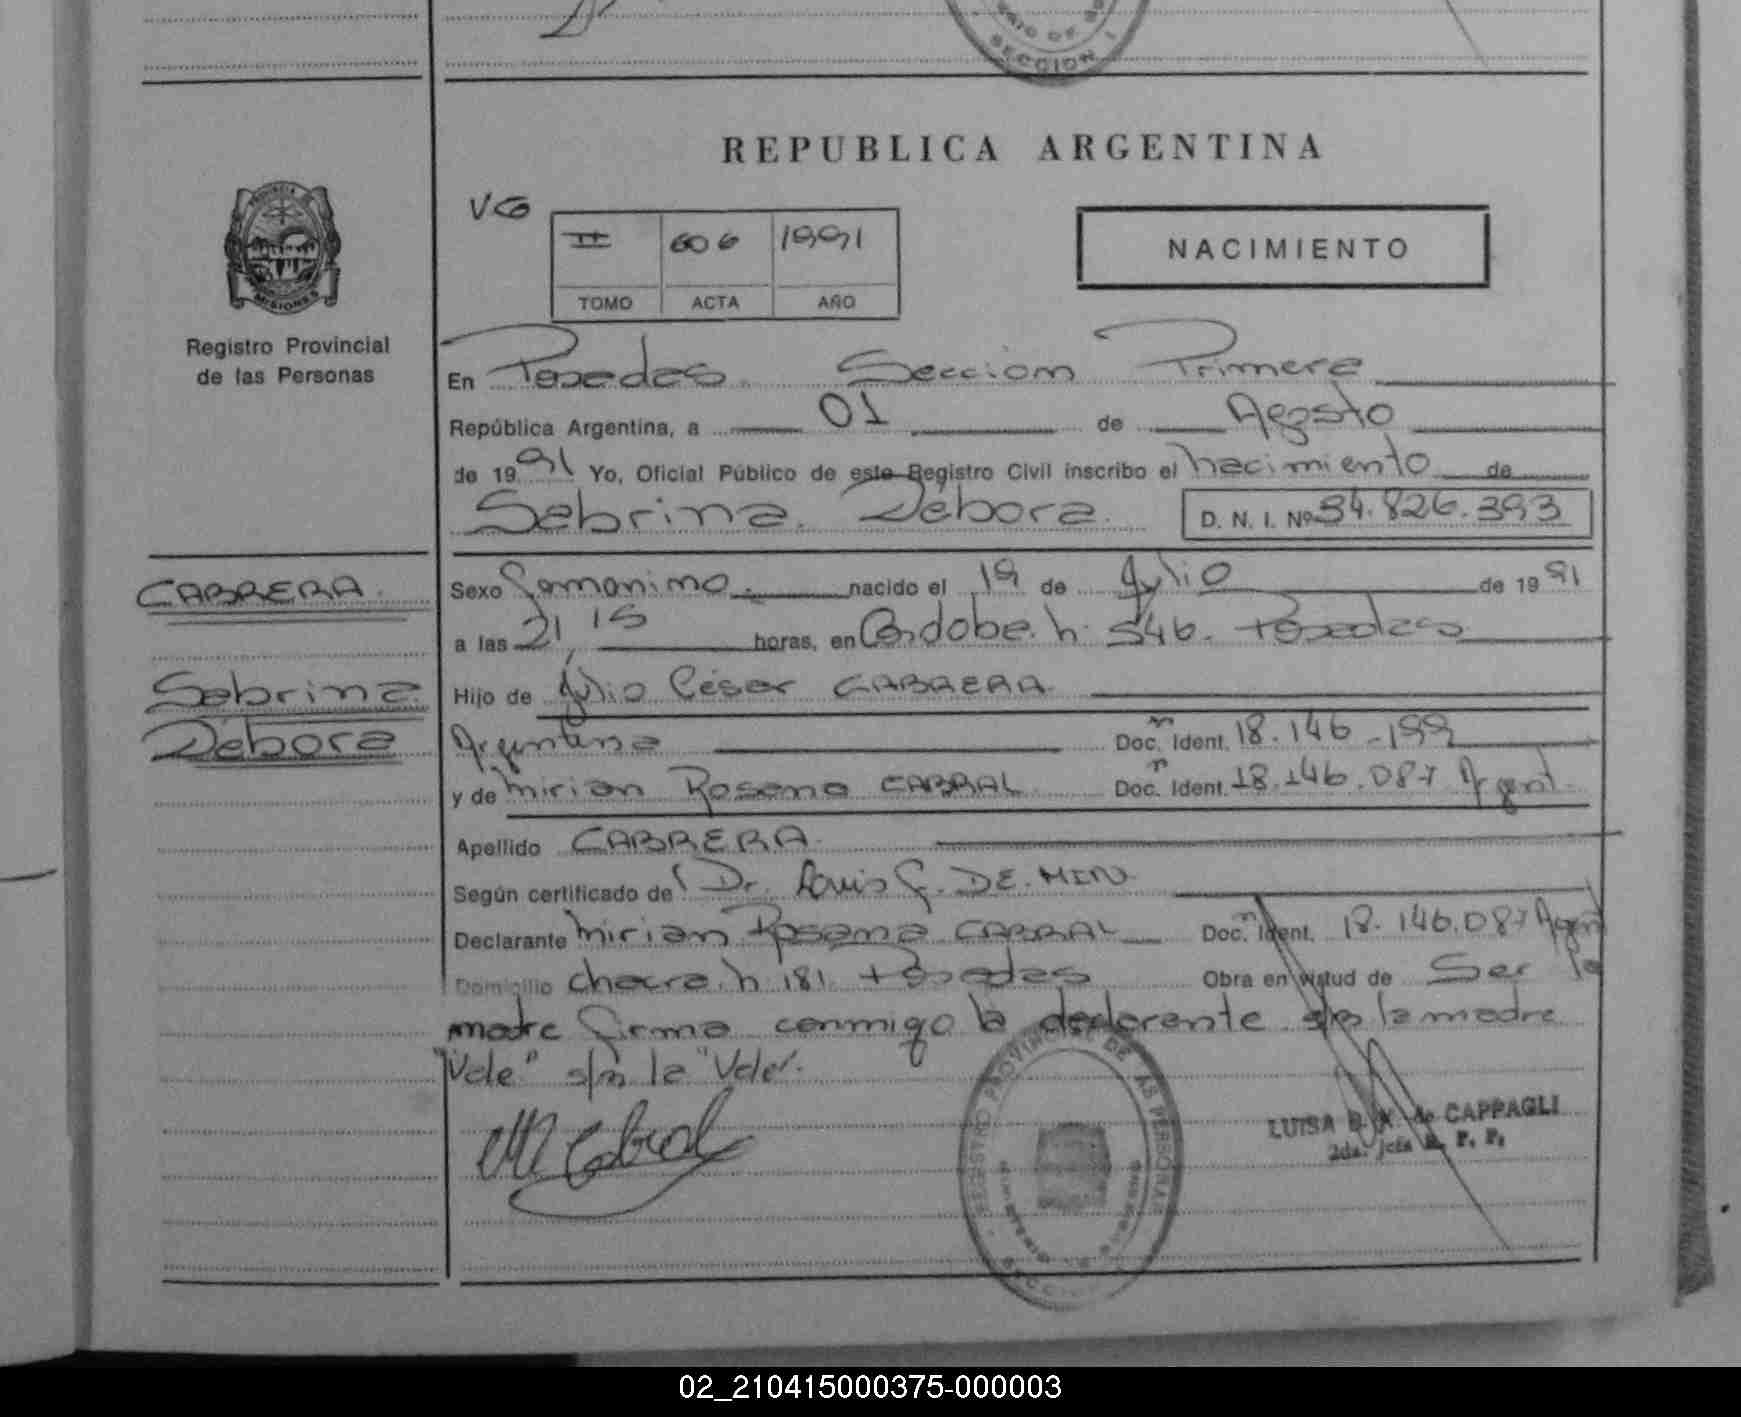 SECCION I
REPUBLICA ARGENTINA
PROVINCIA
MISIONES
Registro Provincial
de las Personas
VG
II 606 1991
TOMO ACTA AÑO
NACIMIENTO
En Posadas. Sección Primera
República Argentina, a 01 de Agosto
de 1991 Yo, Oficial Público de este Registro Civil inscribo el nacimiento de
Sabrina Débora. D. N. I. Nº 34.826.393
CABRERA.
Sabrina
Débora
Sexo Femenino. nacido el 19 de Julio de 1991
a las 21,15 horas, en Córdoba. n. 546. Posadas
Hijo de Julio César CABRERA
Argentina Doc. n Ident. 18.146.199
y de Mirian Rosana CABRAL Doc. n Ident. 18.146.087 Argent.
Apellido CABRERA
Según certificado de Dr. Luis G. DE. MIN
Declarante Mirian Rosana CABRAL Doc. n Ident. 18.146.087 Argent
Domicilio chacra. n. 181. Posadas Obra en virtud de Ser la
madre firma conmigo la declarante s/r la madre
"Vale" s/r la "Vale".
MR Cabral
REGISTRO PROVINCIAL DE LAS PERSONAS
LUISA de CAPPAGLI
2da. Jefa R. P. P.
02_210415000375-000003